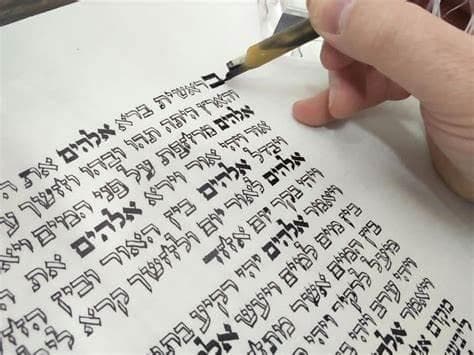 בראשית ברא אלהים את
והארץ היתה תהו ובהו וחשך
אלהים מרחפת על פני המים
אור ויהי אור וירא אלהים את
ויבדל אלהים בין האור ובין
אלהים לאור יום ולחשך קרא
ויהי בקר יום אחד
ויאמר אלהים יהי רקיע
בין מים למים ויעש
בין המים אשר
מעל לרקיע
ויהי ערב
ויאמר
מקום